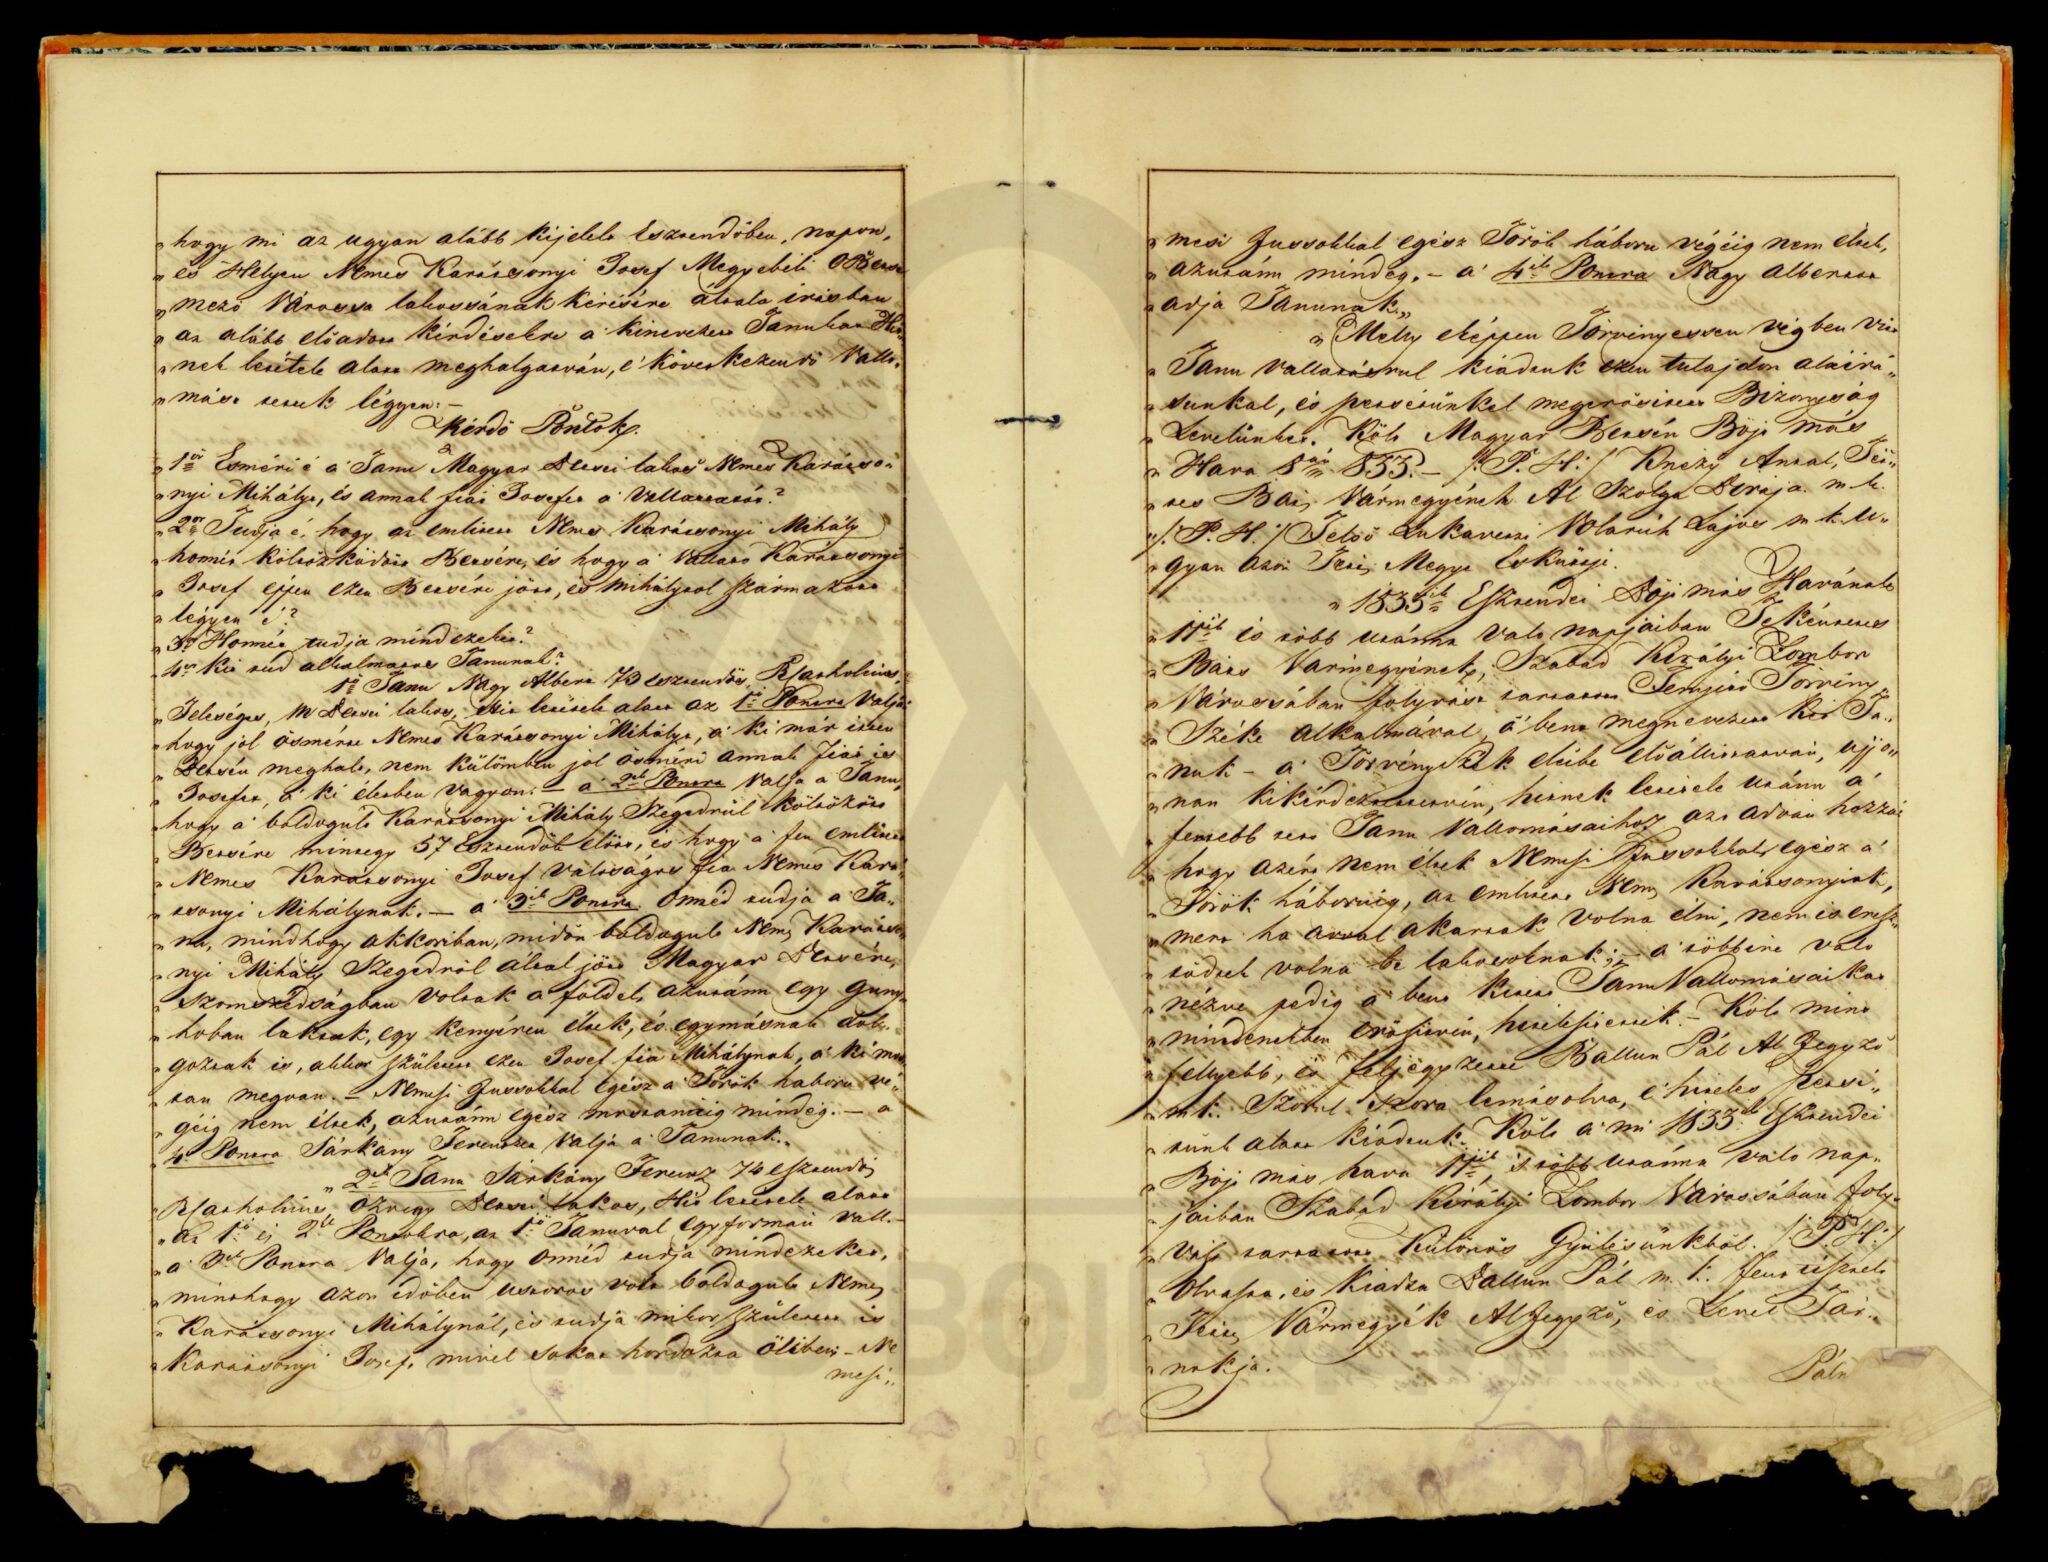 „ hogy mi az ugyan alább kijelelt Esztendőben, napon,
„ és Helyen Nemes Karácsonyi Josef Megyebéli Ó Betse
„ mező Várossa lakossának kérésére általa írásban
„ az alább előadott kérdésekre a' kinevezett Tanukat Hit-
„ nek letétele alatt meghalgatván, e' következendő Vallo-
„ mást tettek légyen: –
Kérdő Pontok.
„ 1ör Esméri é a' Tanu Magyar Betsei lakost Nemes Karátso-
„ nyi Mihályt, és annak fiát Josefet a' Vallattatót?
„ 2or Tudja é, hogy az emlitett Nemes Karácsonyi Mihály
„ honnét költözködött Betsére, és hogy a' Vallató Karátsonyi
„ Josef éppen ezen Betsére jött, és Mihálytol származott
„ légyen é?
„ 3or Honnét tudja mindezeket?
„ 4er Kit tud alkalmatos Tanunak?
1ő Tanu Nagy Albert 73 esztendős, R. Catholicus,
„ Jelességes, M Betsei lakos, Hit letétele alatt az 1ő Pontra Vallja
„ hogy jól ösmérte Nemes Karátsonyi Mihályt, a' ki már itten
„ Betsén meghalt, nem külömben jól ösméri annak fiát is
„ Josefet, a' ki életben vagyon: – a' 2ik Pontra Vallja a Tanu,
„ hogy a' boldogult Karátsonyi Mihály Szegedrül költözött
„ Betsére mintegy 57 Esztendők előtt, és hogy a' fen emlitett
„ Nemes Karátsonyi Josef valóságos fia Nemes Kará-
„ tsonyi Mihálynak. – a' 3ik Pontra Onnéd tudja a Ta-
„ nu, mindhogy akkoriban, midőn boldogult Nemes Karátso-
„ nyi Mihály Szegedről által jött Magyar Betsére,
„ szomszédságban voltak a földek, azután egy guny-
„ hoban laktak, egy kenyéren éltek, és egymásnak dol-
„ goztak is, akkor született ezen Josef fia Mihálynak, a' ki most
„ tan megvan. – Nemesi Jussokkal egész a' Török haboru vé-
„ géig nem éltek, azután egész mostanáig mindég. – a
„ 4. Pontra Sárkány Ferentzet Vallja a' Tanunak.
„ 2ik Tanu Sárkány Ferencz 74 esztendős
„ R. Catholicus, özvegy Betsei lakos, Hit letétele alatt
„ az 1ő és 2ik Pontokra, az 1ő Tanuval egyformán Vall. –
„ a' 3ik Pontra Vallja, hogy onnéd tudja mindezeket,
„ minthogy azon időben ustoros volt boldogult Nemes
„ Karácsonyi Mihálynál, és tudja mikor született is
„ Karátsonyi Josef, mivel sokat hordozta ölében – Ne
mesi„
„ mesi Jussokkal egész Török háboru végéig nem éltek,
„ azután mindég. – a' 4ik Pontra Nagy Albertet
„ adja Tanunak.„
„ Mely eképpen Törvényessen végben vitt
„ Tanu vallatásrul kiadtuk ezen tulajdon aláirá-
„ sunkal, és petsétünkel megerősitett Bizonyság
„ Levelünket. Költ Magyar Betsén Böjt más
„ Hava 8án 833. – /: P. H :/ Knézy Antal, Tek-
„ tes Báts Vármegyének Al Szolga Birája m. k.
„ /: P. H. :/ Felső Lukavetzi Vlasich Lajos m. k. u-
„ gyan azon Ttes Megye Esküttje.
„ 1833ik Esztendei Böjt más Havának
„ 11ik és több utánna való napjaiban Tekéntetes
„ Báts Vármegyének, Szabad Királyi Zombor
„ Várossában folyvást tartatott Fenyitő Törvény
„ Széke alkalmával a' bent megnevezett két Ta-
„ nuk – a' Törvény Szék eleibe előállittatván, ujjo-
„ nan kikérdeztettetvén, hitnek letétele utánn a'
„ fentebb tett Tanu Vallomásaihoz azt adván hozzá:
„ hogy azért nem éltek Nemesi Jussokkal egész a'
„ Török háboruig, az emlitett Nemes Karátsonyiak,
„ mert ha avval akartak volna élni, nem is eresz-
„ tődtek volna be lakosoknak; – a' többire való
„ nézve pedig a' bent kitett Tanu Vallomásaikat
„ mindenekben erősitvén, hitelesitették. – Költ mint
„ fellyebb, és feljegyzette Ballun Pál Al Jegyző
„ m. k. Szorul szora lemásolva, e' hiteles petsé-
„ tünk alatt kiadtuk. Költ a' mi 1833ik Esztendei
„ Böjt más hava 11ik, s több utánna való nap-
„ jaiban Szabad Királyi Zombor Várossában foly-
„ vást tartatott Különös Gyülésünkböl. /: P. H :/
„ Olvasta, és Kiadta Ballun Pál m. k. fent tisztelt
„ Ttes Vármegyék Al Jegyző, és Levél Tár-
„ nokja.